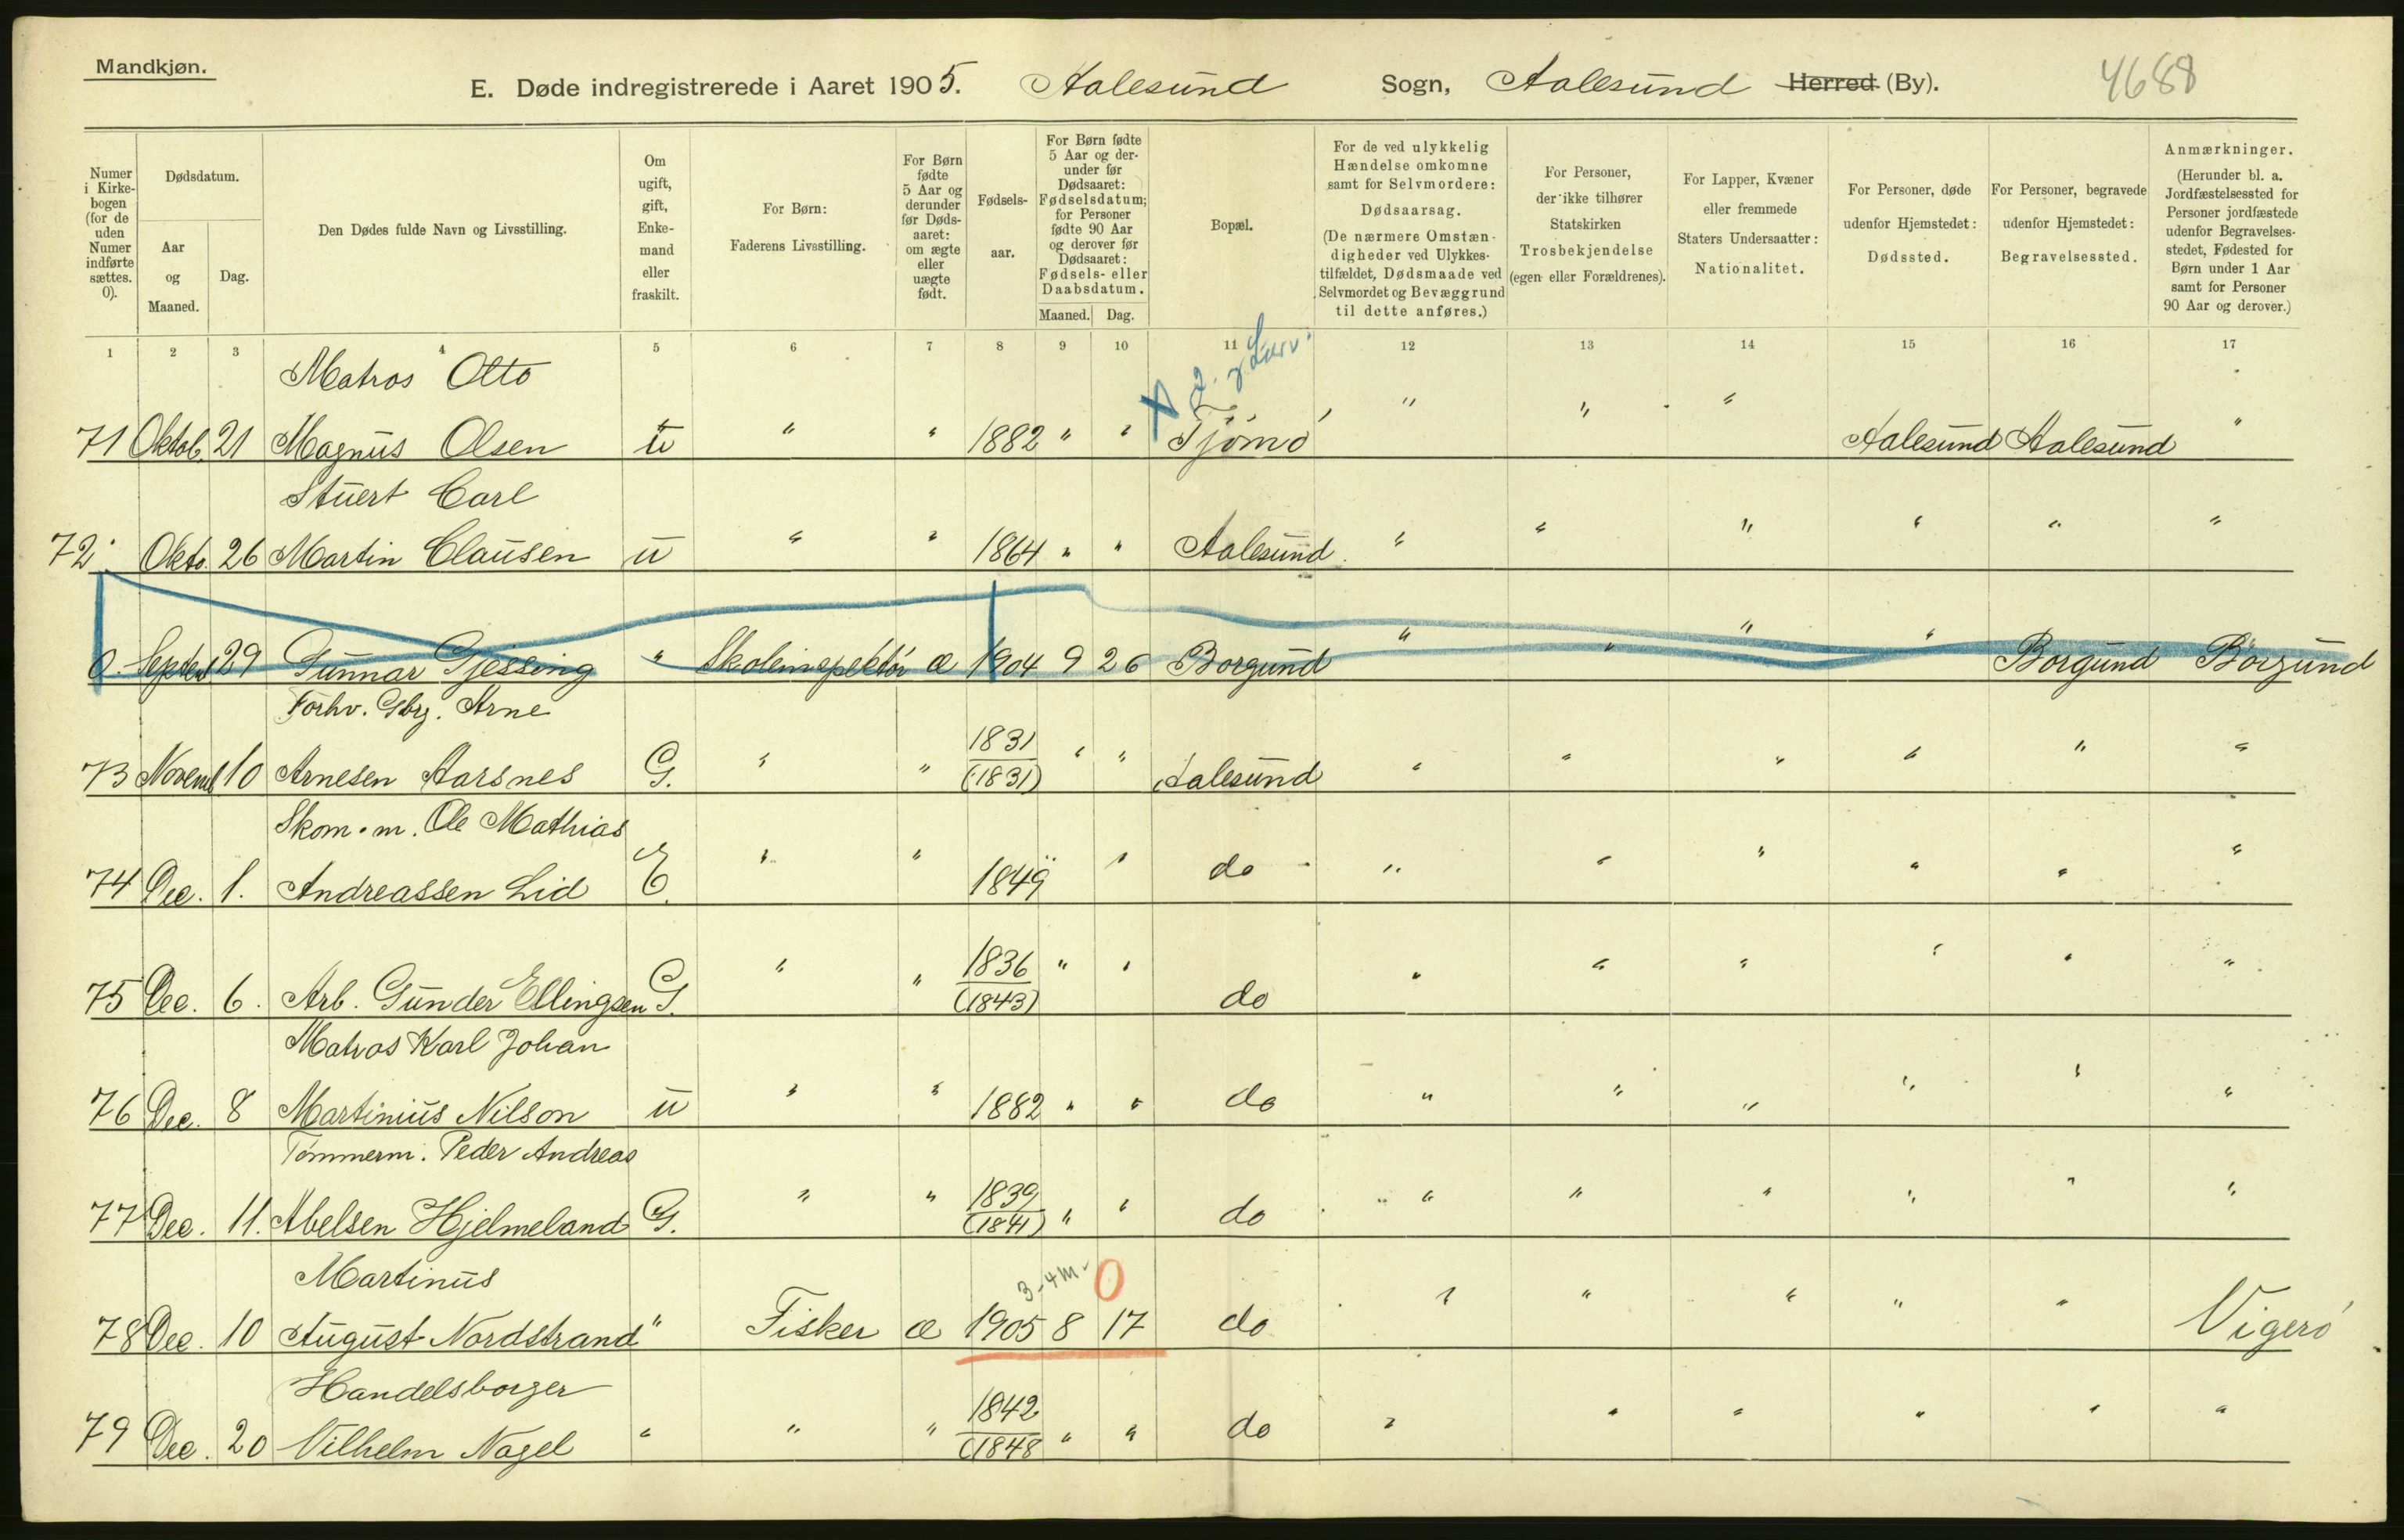 Mandkjøn.
E. Døde indregistrerede i Aaret 1905. Aalesund Sogn, Aalesund Herred (By).
4688
Numer i Kirkebogen (for de uden Numer indførte sættes. 0).
Dødsdatum.
Aar og Maaned.
Dag.
Den Dødes fulde Navn og Livsstilling.
Om ugift, gift, Enkemand eller fraskilt.
For Børn: Faderens Livsstilling.
For Børn fødte 5 Aar og derunder før Dødsaaret: om ægte eller uægte født.
Fødselsaar.
For Børn fødte 5 Aar og derunder før Dødsaaret: Fødselsdatum; for Personer fødte 90 Aar og derover før Dødsaaret: Fødsels- eller Daabsdatum.
Maaned. Dag.
Bopæl.
For de ved ulykkelig Hændelse omkomne samt for Selvmordere: Dødsaarsag. (De nærmere Omstændigheder ved Ulykkestilfældet, Dødsmaade ved Selvmordet og Bevæggrund til dette anføres.)
For Personer, der ikke tilhører Statskirken Trosbekjendelse (egen eller Forældrenes).
For Lapper, Kvæner eller fremmede Staters Undersaatter: Nationalitet.
For Personer, døde udenfor Hjemstedet: Dødssted.
For Personer, begravede udenfor Hjemstedet: Begravelsessted.
Anmærkninger. (Herunder bl. a. Jordfæstelsessted for Personer jordfæstede udenfor Begravelsesstedet, Fødested for Børn under 1 Aar samt for Personer 90 Aar og derover.)
1 2 3 4 5 6 7 8 9 10 11 12 13 14 15 16 17
Matros Otto
71 Oktob. 21 Magnus Olsen u " " 1882 " " Tjømø " " " Aalesund Aalesund "
Stuert Carl
72 Okto. 26 Martin Clausen u " " 1864 " " Aalesund " " " " " "
0. Septemb 29 Gunnar Gjessing " Skoleinspektør æ 1904 9 26 Borgund " " " " Borgund Borgund
Forhv. Gbrg. Arne
73 Novemb 10 Arnesen Aarsnes G. " " 1831 (1831) " " Aalesund " " " " " "
Skom.m. Ole Mathias
74 Dec. 1. Andreassen Lid E. " " 1849 " " do " " " " " "
75 Dec. 6. Arb. Gunder Ellingsen G. " " 1836 (1843) " " do " " " " " "
Matros Karl Johan
76 Dec. 8 Martinius Nilson u " " 1882 " " do " " " " " "
Tømmerm. Peder Andreas
77 Dec. 11. Abelsen Hjelmeland G. " " 1839 (1841) " " do " " " " " "
Martinus 3-4 M. 0
78 Dec. 10 August Nordstrand " Fisker æ 1905 8 17 do " " " " " Vigerø
Handelsborger
79 Dec. 20 Vilhelm Nagel " " " 1842 (1848 " " do " " " " " "